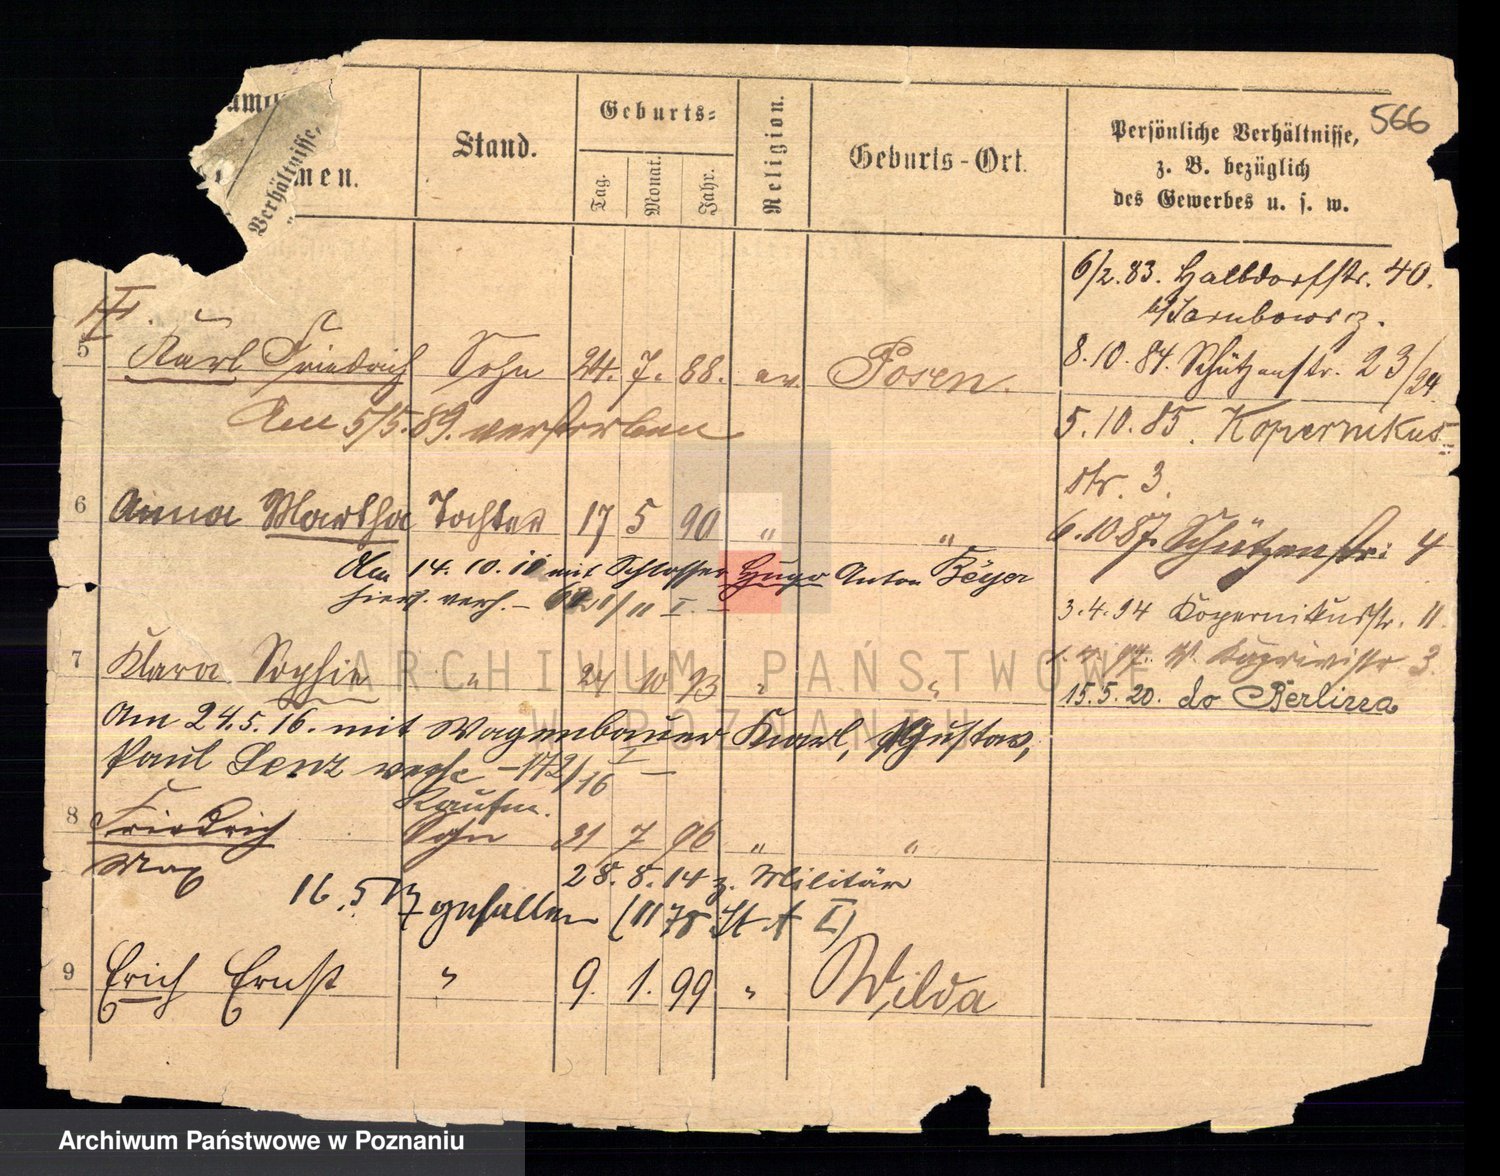 566
Verhältnisse,
men.
Stand.
Geburts=
Tag.
Monat.
Jahr.
Religion.
Geburts-Ort.
Persönliche Verhältnisse,
z. B. bezüglich
des Gewerbes u. s. w.
6/2. 83. Halbdorfstr. 40.
8. 10. 84. Schützenstr. 23/24.
5. 10. 85. Kopernikus=
str. 3.
6. 10. 87. Schützenstr: 4
3. 4. 94 Kopernikusstr. 11.
15. 5. 20. do Berlina
5 Karl Friedrich Sohn 24. 7. 88. ev. Posen.
Am 5/5. 89. verstorben
6 Anna Martha Tochter 17 5 90 " "
Am 14. 10. mit Schlosser Hugo Anton Beyer
hier. verh. –
7 Klara Sophie " 24 10 93 " "
Am 24. 5. 16. mit Wagenbauer Karl, Gustav,
Paul Lenz verh. – 172/16 I –
Kaufm.
8 Friedrich Sohn 31 7 96 " "
Max
28. 8. 14 z. Militär
16. 5. 17 gefallen (1178 St. A I)
9 Erich Ernst " 9. 1. 99 " Wilda
ARCHIWUM PAŃSTWOWE
W POZNANIU
Archiwum Państwowe w Poznaniu